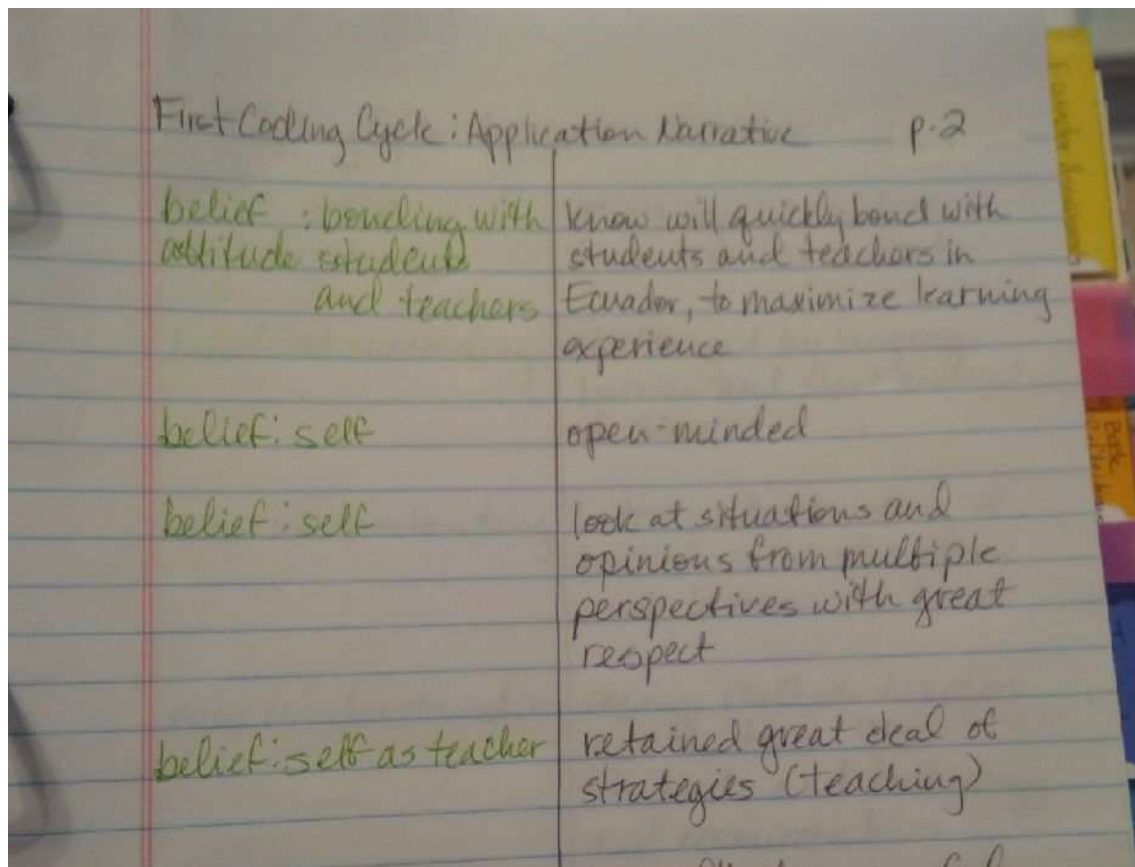 First Coding Cycle: Application Narrative p.2
belief : bonding with
attitude students
and teachers
know will quickly bond with
students and teachers in
Ecuador, to maximize learning
experience
belief: self
open-minded
belief: self
look at situations and
opinions from multiple
perspectives with great
respect
belief: self as teacher
retained great deal of
strategies (teaching)